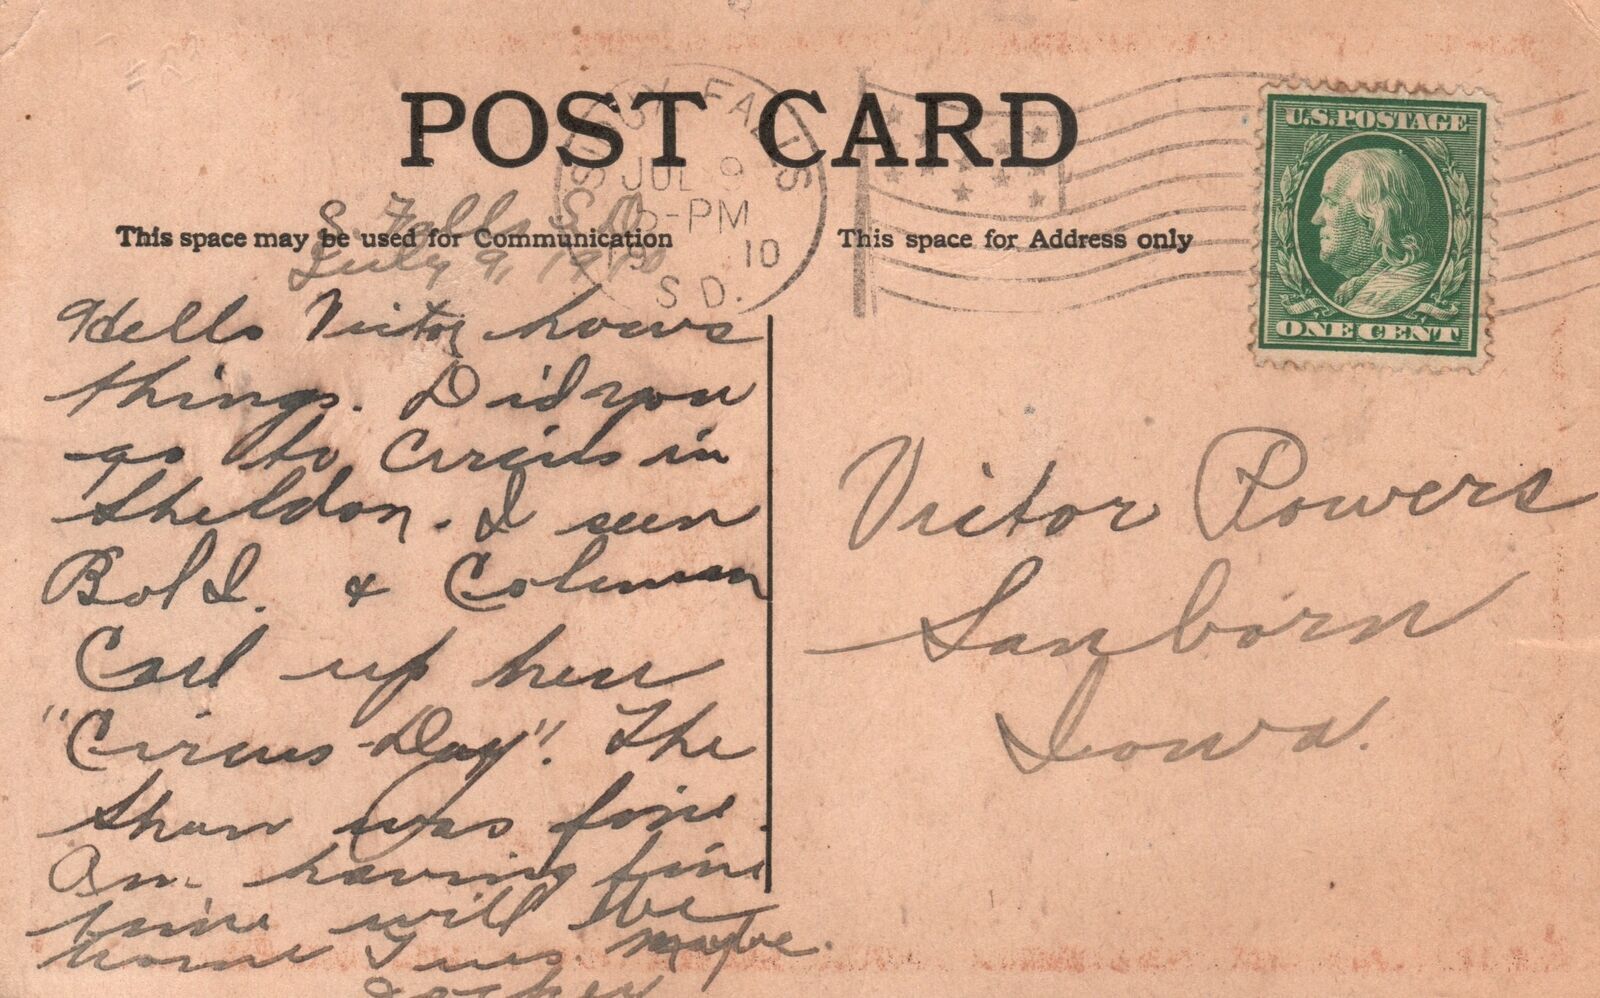 POST CARD
SIOUX FALLS
JUL 9
-PM
19 10
S.D.
U.S. POSTAGE
ONE CENT
This space may be used for Communication
This space for Address only
S. Falls S.D.
July 9, 1910
Hello Victor hows
things. Did you
go to Circus in
Sheldon. I seen
Bob I. & Coleman
Carl up here
"Circus Day". The
Show was fine.
Am having fine
time will be
home Tues. maybe.
Victor Powers
Sanborn
Iowa.